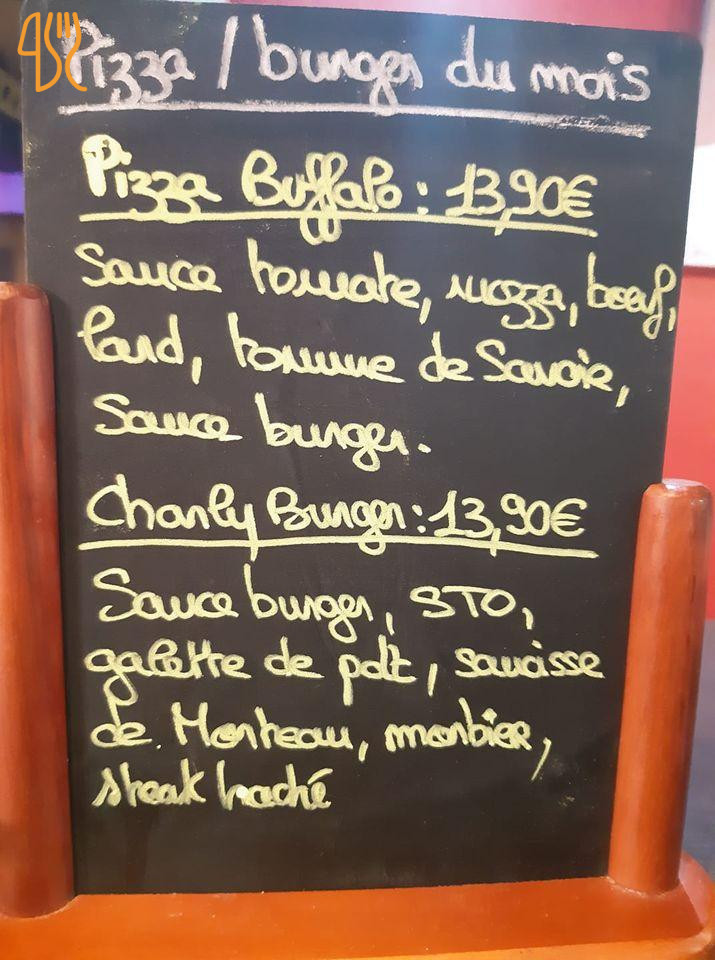 Pizza / burger du mois
Pizza Buffalo : 13,90€
Sauce tomate, mozza, boeuf,
lard, tomme de Savoie,
Sauce burger.
Charly Burger : 13,90€
Sauce burger, STO,
galette de pdt, saucisse
de Morteau, morbier,
steak haché